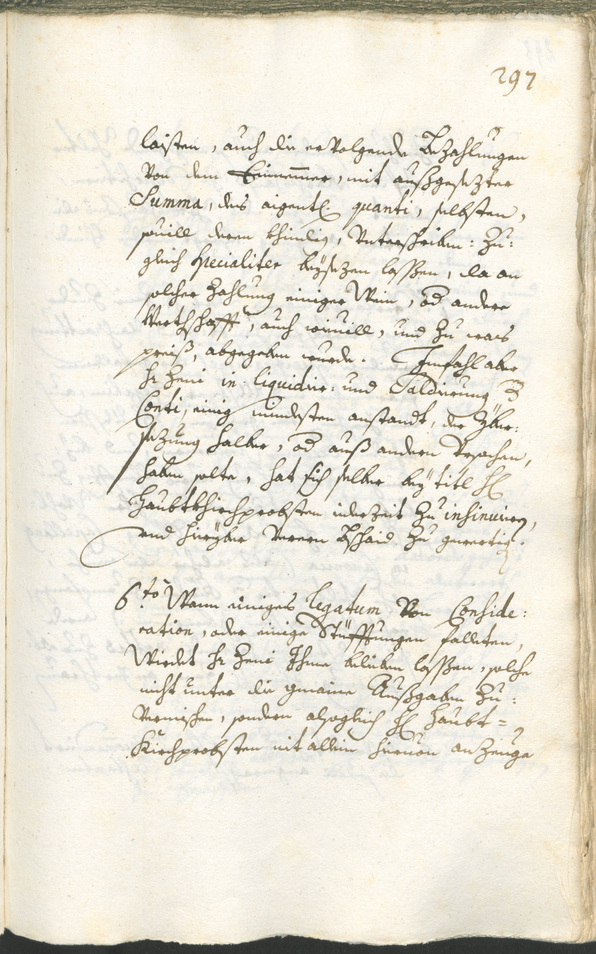 297
laisten, auch die ervolgende Bezahlungen
von dem Einnemmer, mit außgesezter
Summa, des aigentl quanti, selbsten,
souill deren khindig, Unterschriben: Zu:
gleich specialiter beysezen lassen, da an
solcher Zahlung einiger Wein, od andere
Werthschafft, auch wieuill, und Zu was
preiß, abgegeben wurde. Imfahl aber
hr Zeni in liquidir: und Saldierung
Conti, einig mindesten anstandt, der yber:
sezung halber, od auß andern Ursachen,
haben solte, hat sich selber bey titl H
Haubtkhirchprobsten iderzeit Zu insinuiren,
und hieryber Bschaid Zu gewertig.
6to Wann einiges legatum von Conside:
ration, oder einige Stüfftungen falleten,
Wirdet hr Zeni Ihme belieben lassen, solche
nicht unter die gmaine Außgaben Zu:
vermischen, sondern alsogleich H Haubt=
Kirchprobsten nit allein hieuon anZeige